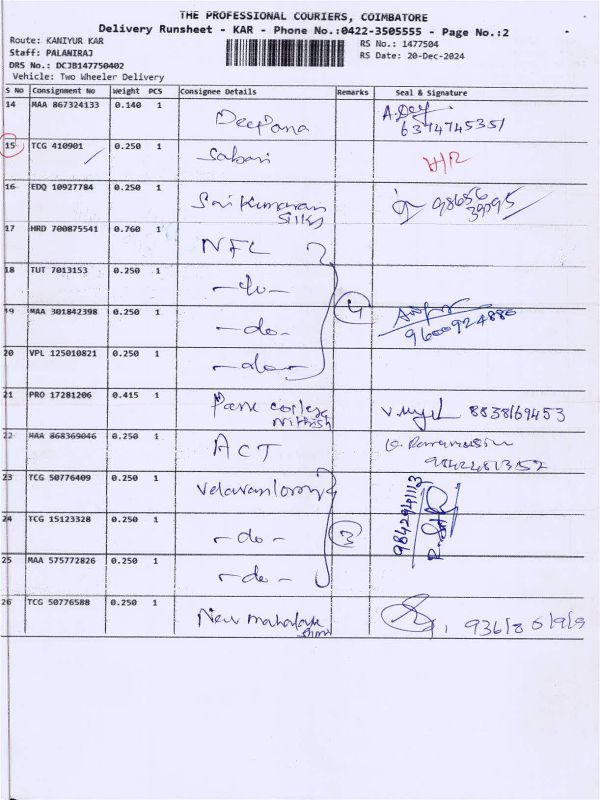 THE PROFESSIONAL COURIERS, COIMBATORE
Delivery Runsheet - KAR - Phone No.:0422-3505555 - Page No.:2
Route: KANIYUR KAR
RS No.: 1477504
Staff: PALANIRAJ
RS Date: 20-Dec-2024
DRS No.: DCJB147750402
Vehicle: Two Wheeler Delivery
S No Consignment No Weight PCS Consignee Details Remarks Seal & Signature
14 MAA 867324133 0.140 1 Deepana
6374745351
15 TCG 410901 0.250 1 Sabari
16 EDQ 10927784 0.250 1 Sai Kumaran
Silks
17 HRD 700875541 0.760 1 NFL
18 TUT 7013153 0.250 1 -do-
4
19 MAA 301842398 0.250 1 -do-
9600924886
20 VPL 125010821 0.250 1 -do-
21 PRO 17281206 0.415 1 Park college
Nithish
8838169453
22 MAA 868369046 0.250 1 ACT
23 TCG 50776409 0.250 1
9842941113
24 TCG 15123328 0.250 1 -do-
3
25 MAA 575772826 0.250 1 -do-
26 TCG 50776588 0.250 1 New